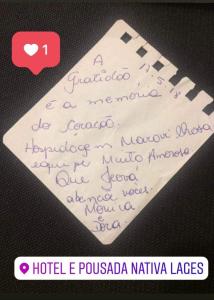 1
A
Gratidão
é a memória
do Coração.
Hospedagem Maravilhosa
equipe Muito Amorosa
Que Jeová
abençoe vocês.
Mônica
e
HOTEL E POUSADA NATIVA LAGES